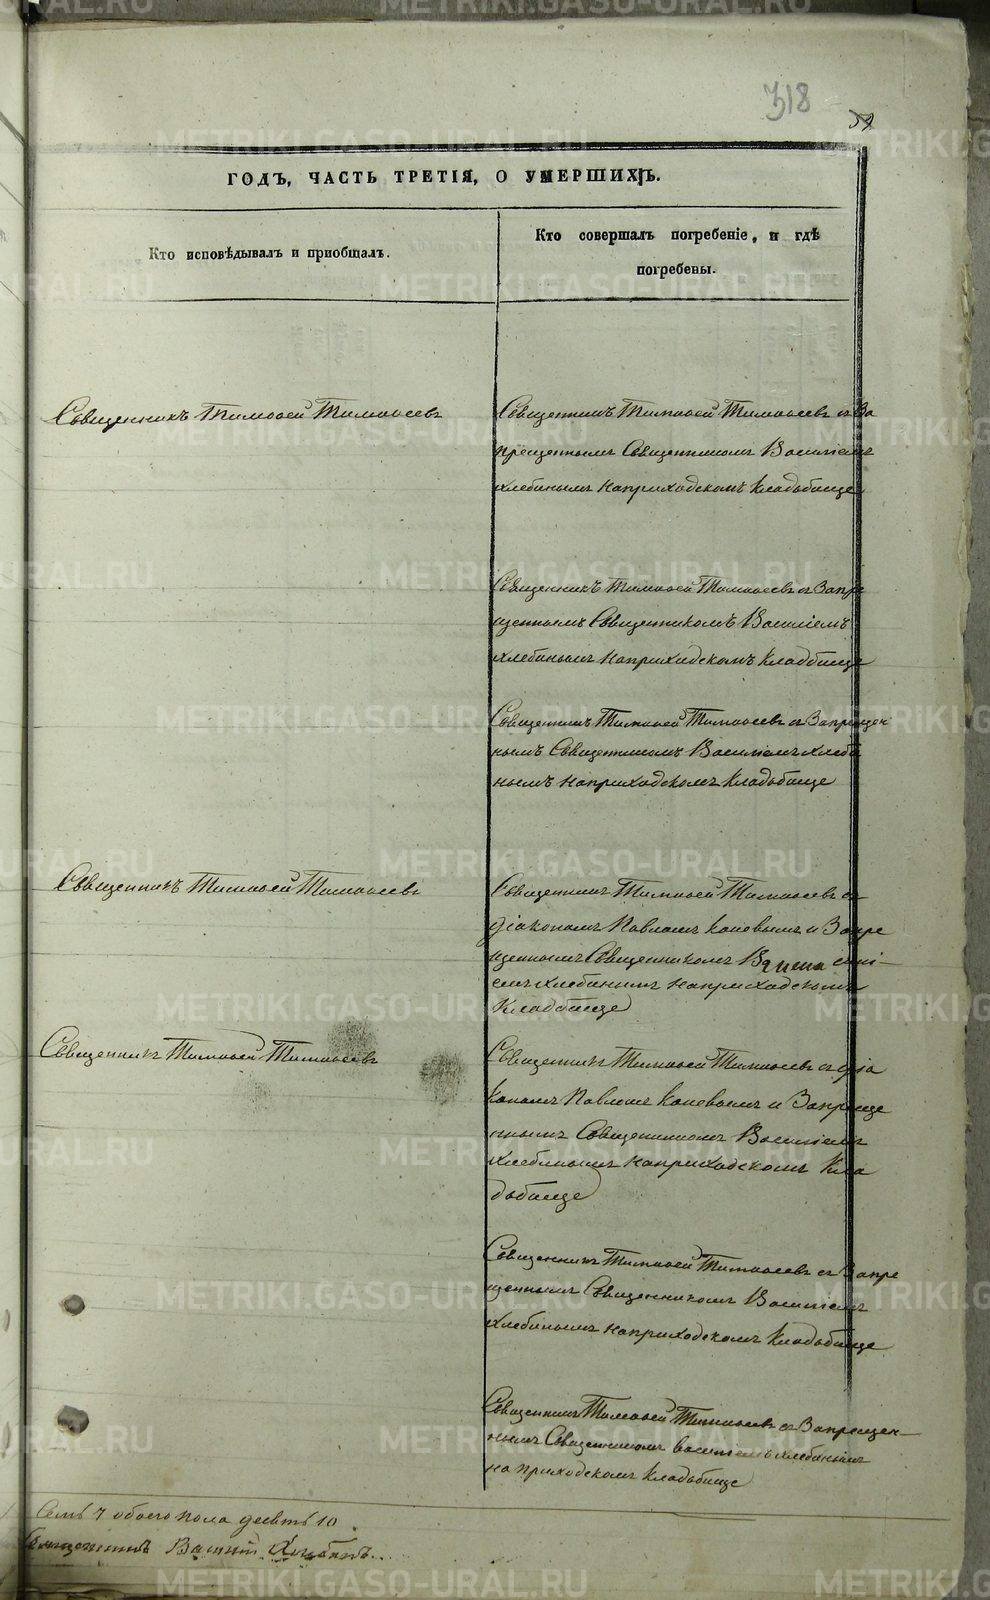 318
ГОДЪ, ЧАСТЬ ТРЕТІЯ, О УМЕРШИХЪ.
Кто исповѣдывалъ и приобщалъ.
Кто совершалъ погребеніе, и гдѣ
погребены.
Священникъ Тимоѳей Тимоѳеевъ
Священникъ Тимоѳей Тимоѳеевъ съ За
прещеннымъ Священникомъ Василіемъ
Хлебинымъ на приходскомъ кладьбище
Священникъ Тимоѳей Тимоѳеевъ съ Запре
щеннымъ Священникомъ Василіемъ
Хлебинымъ на приходскомъ Кладбище
Священникъ Тимоѳей Тимоѳеевъ съ Запрещен
нымъ Священникомъ Василіемъ Хлеби
нымъ на приходскомъ Кладьбище
Священникъ Тимоѳей Тимоѳеевъ
Священникъ Тимоѳей Тимоѳеевъ съ
діакономъ Павломъ Коневымъ и Запре
щеннымъ Священникомъ
емъ Хлебинымъ на приходскомъ
Кладбище
Священникъ Тимоѳей Тимоѳеевъ
Священникъ Тимоѳей Тимоѳеевъ съ діа
кономъ Павломъ Коневымъ и Запреще
ннымъ Священникомъ Василіемъ
Хлебинымъ на приходскомъ Кла
дьбище
Священникъ Тимоѳей Тимоѳеевъ съ Запре
щеннымъ Священникомъ Василіемъ
Хлебинымъ на приходскомъ Кладьбище
Священникъ Тимоѳей Тимоѳеевъ съ Запрещен
нымъ Священникомъ Василіемъ Хлебинымъ
на приходскомъ Кладьбище
Семь 7 обоего пола 10
Священникъ Василій Хлебинъ
METRIKI.GASO-URAL.RU